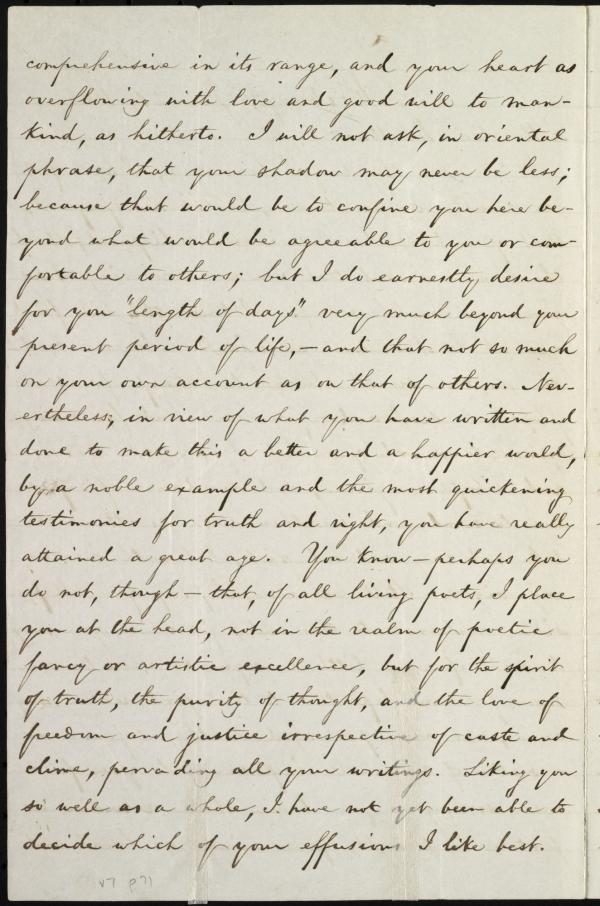 comprehensive in its range, and your heart as
overflowing with love and good will to man-
kind, as hitherto. I will not ask, in oriental
phrase, that your shadow may never be less;
because that would be to confine you here be-
yond what would be agreeable to you or com-
fortable to others; but I do earnestly desire
for you "length of days" very much beyond your
present period of life,—and that not so much
on your own account as on that of others. Nev-
ertheless, in view of what you have written and
done to make this a better and a happier world,
by a noble example and the most quickening
testimonies for truth and right, you have really
attained a great age. You know—perhaps you
do not, though—that, of all living poets, I place
you at the head, not in the realm of poetic
fancy or artistic excellence, but for the spirit
of truth, the purity of thought, and the love of
freedom and justice irrespective of caste and
clime, pervading all your writings. Liking you
so well as a whole, I have not yet been able to
decide which of your effusions I like best.
v7 p71